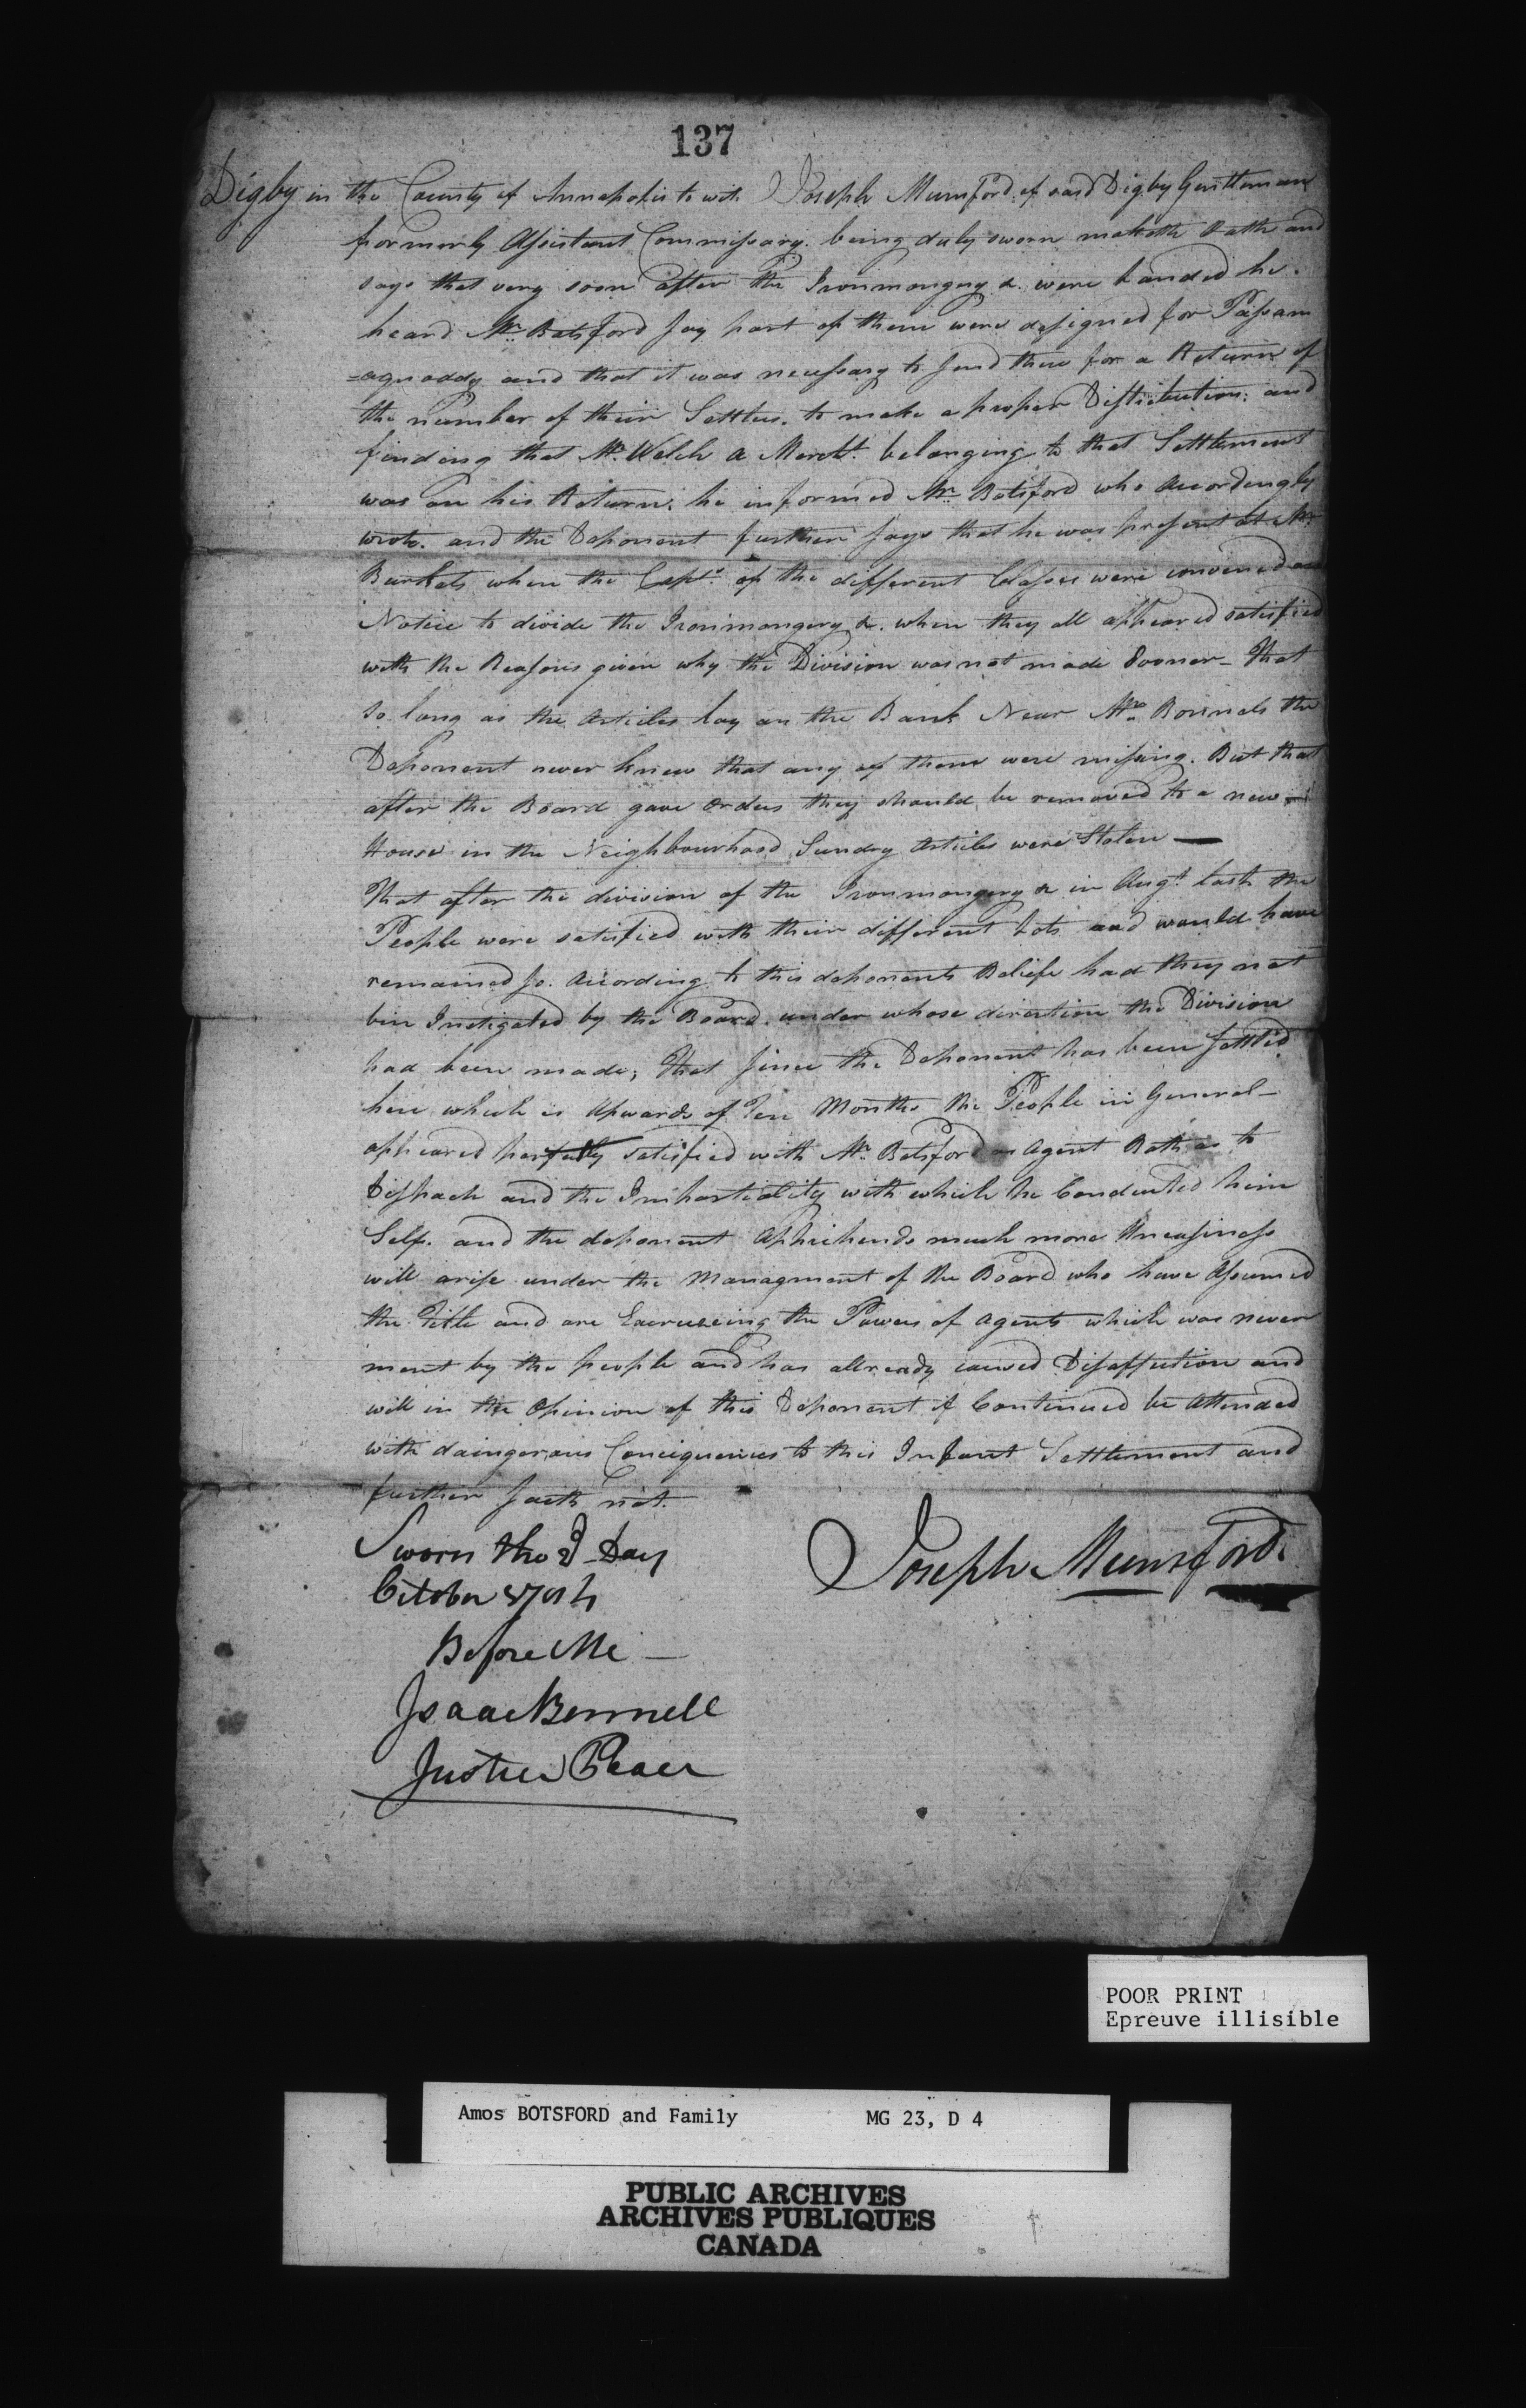 137
Digby in the County of Annapolis to wit. Joseph Mumford of said Digby Gentleman
formerly Assistant Commissary. being duly sworn maketh Oath and
says that very soon after the Ironmongery &. were Landed he.
heard Mr. Botsford say part of them were designed for Passam
=aquoddy and that it was necessary to send there for a Return of
the number of their Settlers. to make a proper Distribution; and
finding that Mr. Welch a Mercht. belonging to that Settlement
was on his Return. he informed Mr. Botsford who Accordingly
wrote. and the Deponent further says that he was present at Mr.
when the Capts. of the different Classes were convened
Notice to divide the Ironmongery &. when they all appeared satisfied
with the Reasons given why the Division was not made Sooner - That
so long as the Articles lay on the Bank Near the
Deponent never knew that any of them were missing. But that
after the Board gave orders they should be removed to a new
House in the Neighbourhood Sundry Articles were Stolen —
That after the division of the Ironmongery & in Augt. last the
People were satisfied with their different Lots and would have
remained so. According to this deponents Beliefe had they not
bin Instigated by the Board. under whose direction the Division
had been made; That since the Deponent has been settled
here which is Upwards of Ten Months the People in General -
appeared perfectly satisfied with Mr. Botsford as Agent Both as to
Dispach and the Impartiality with which he Conducted him
Self. and the deponent Apprihends much more Uneasiness
will arise under the Managment of the Board who have Assumed
the Title and are Exerciseing the Powers of Agents which was never
ment by the people and has allready caused Disaffection and
will in the Opinion of this Deponent if Continued be Attended
with daingerous Consiquences to this Infant Settlement and
further saith not.
Sworn the Day
October 1784
Before Me —
Isaac Bonnell
Justice Peace
Joseph Mumford.
POOR PRINT
Epreuve illisible
Amos BOTSFORD and Family MG 23, D 4
PUBLIC ARCHIVES
ARCHIVES PUBLIQUES
CANADA